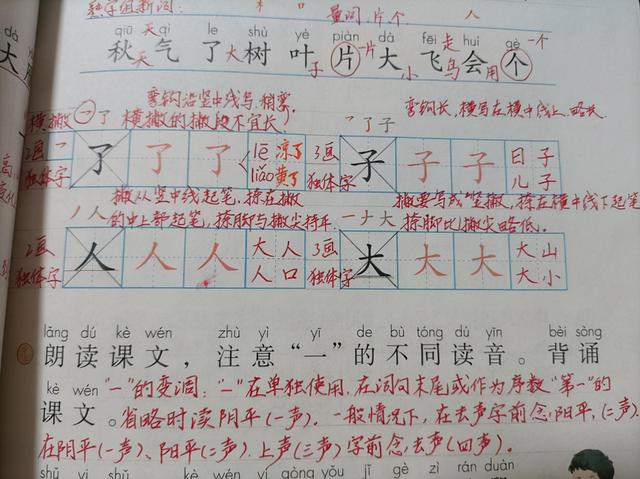 独字组新词： 量词：片 个 人
qiū tiān qì le shù yè piàn dà fēi huì gè
秋 天 气 了 大 树 叶 子 片 一片 大 小 飞 走 鸟 会 用 个 一个
弯钩沿竖中线写，稍弯。 弯钩长，横写在横中线上，略长
横撇 一 了 横撇的撇段不宜长） 一了子
2画 独体字 了 了 了 lē 凉了 liǎo 黄了 3画 独体字 子 子 子 日子 儿子
撇从竖中线起笔，捺在撇 撇要写成竖撇，捺在横中线下起笔
丿人 的中上部起笔，捺脚与撇尖持平。 一ナ大 捺脚比撇尖略低。
2画 独体字 人 人 人 大人 人口 3画 独体字 大 大 大 大山 大小
lǎng dú kè wén zhù yì yī de bù tóng dú yīn bèi sòng
朗读课文，注意“一”的不同读音。背诵
kè wén “一”的变调：“一”在单独使用，在词句末尾或作为序数“第一”的
课文。省略时读阴平（一声）。一般情况下，在去声字前念，阳平，（二声）
在阴平（一声）、阳平（二声）、上声（三声）字前念，去声（四声）。
shǔ yi shǔ kè wén yì gòng yǒu jǐ gè zì rán duàn